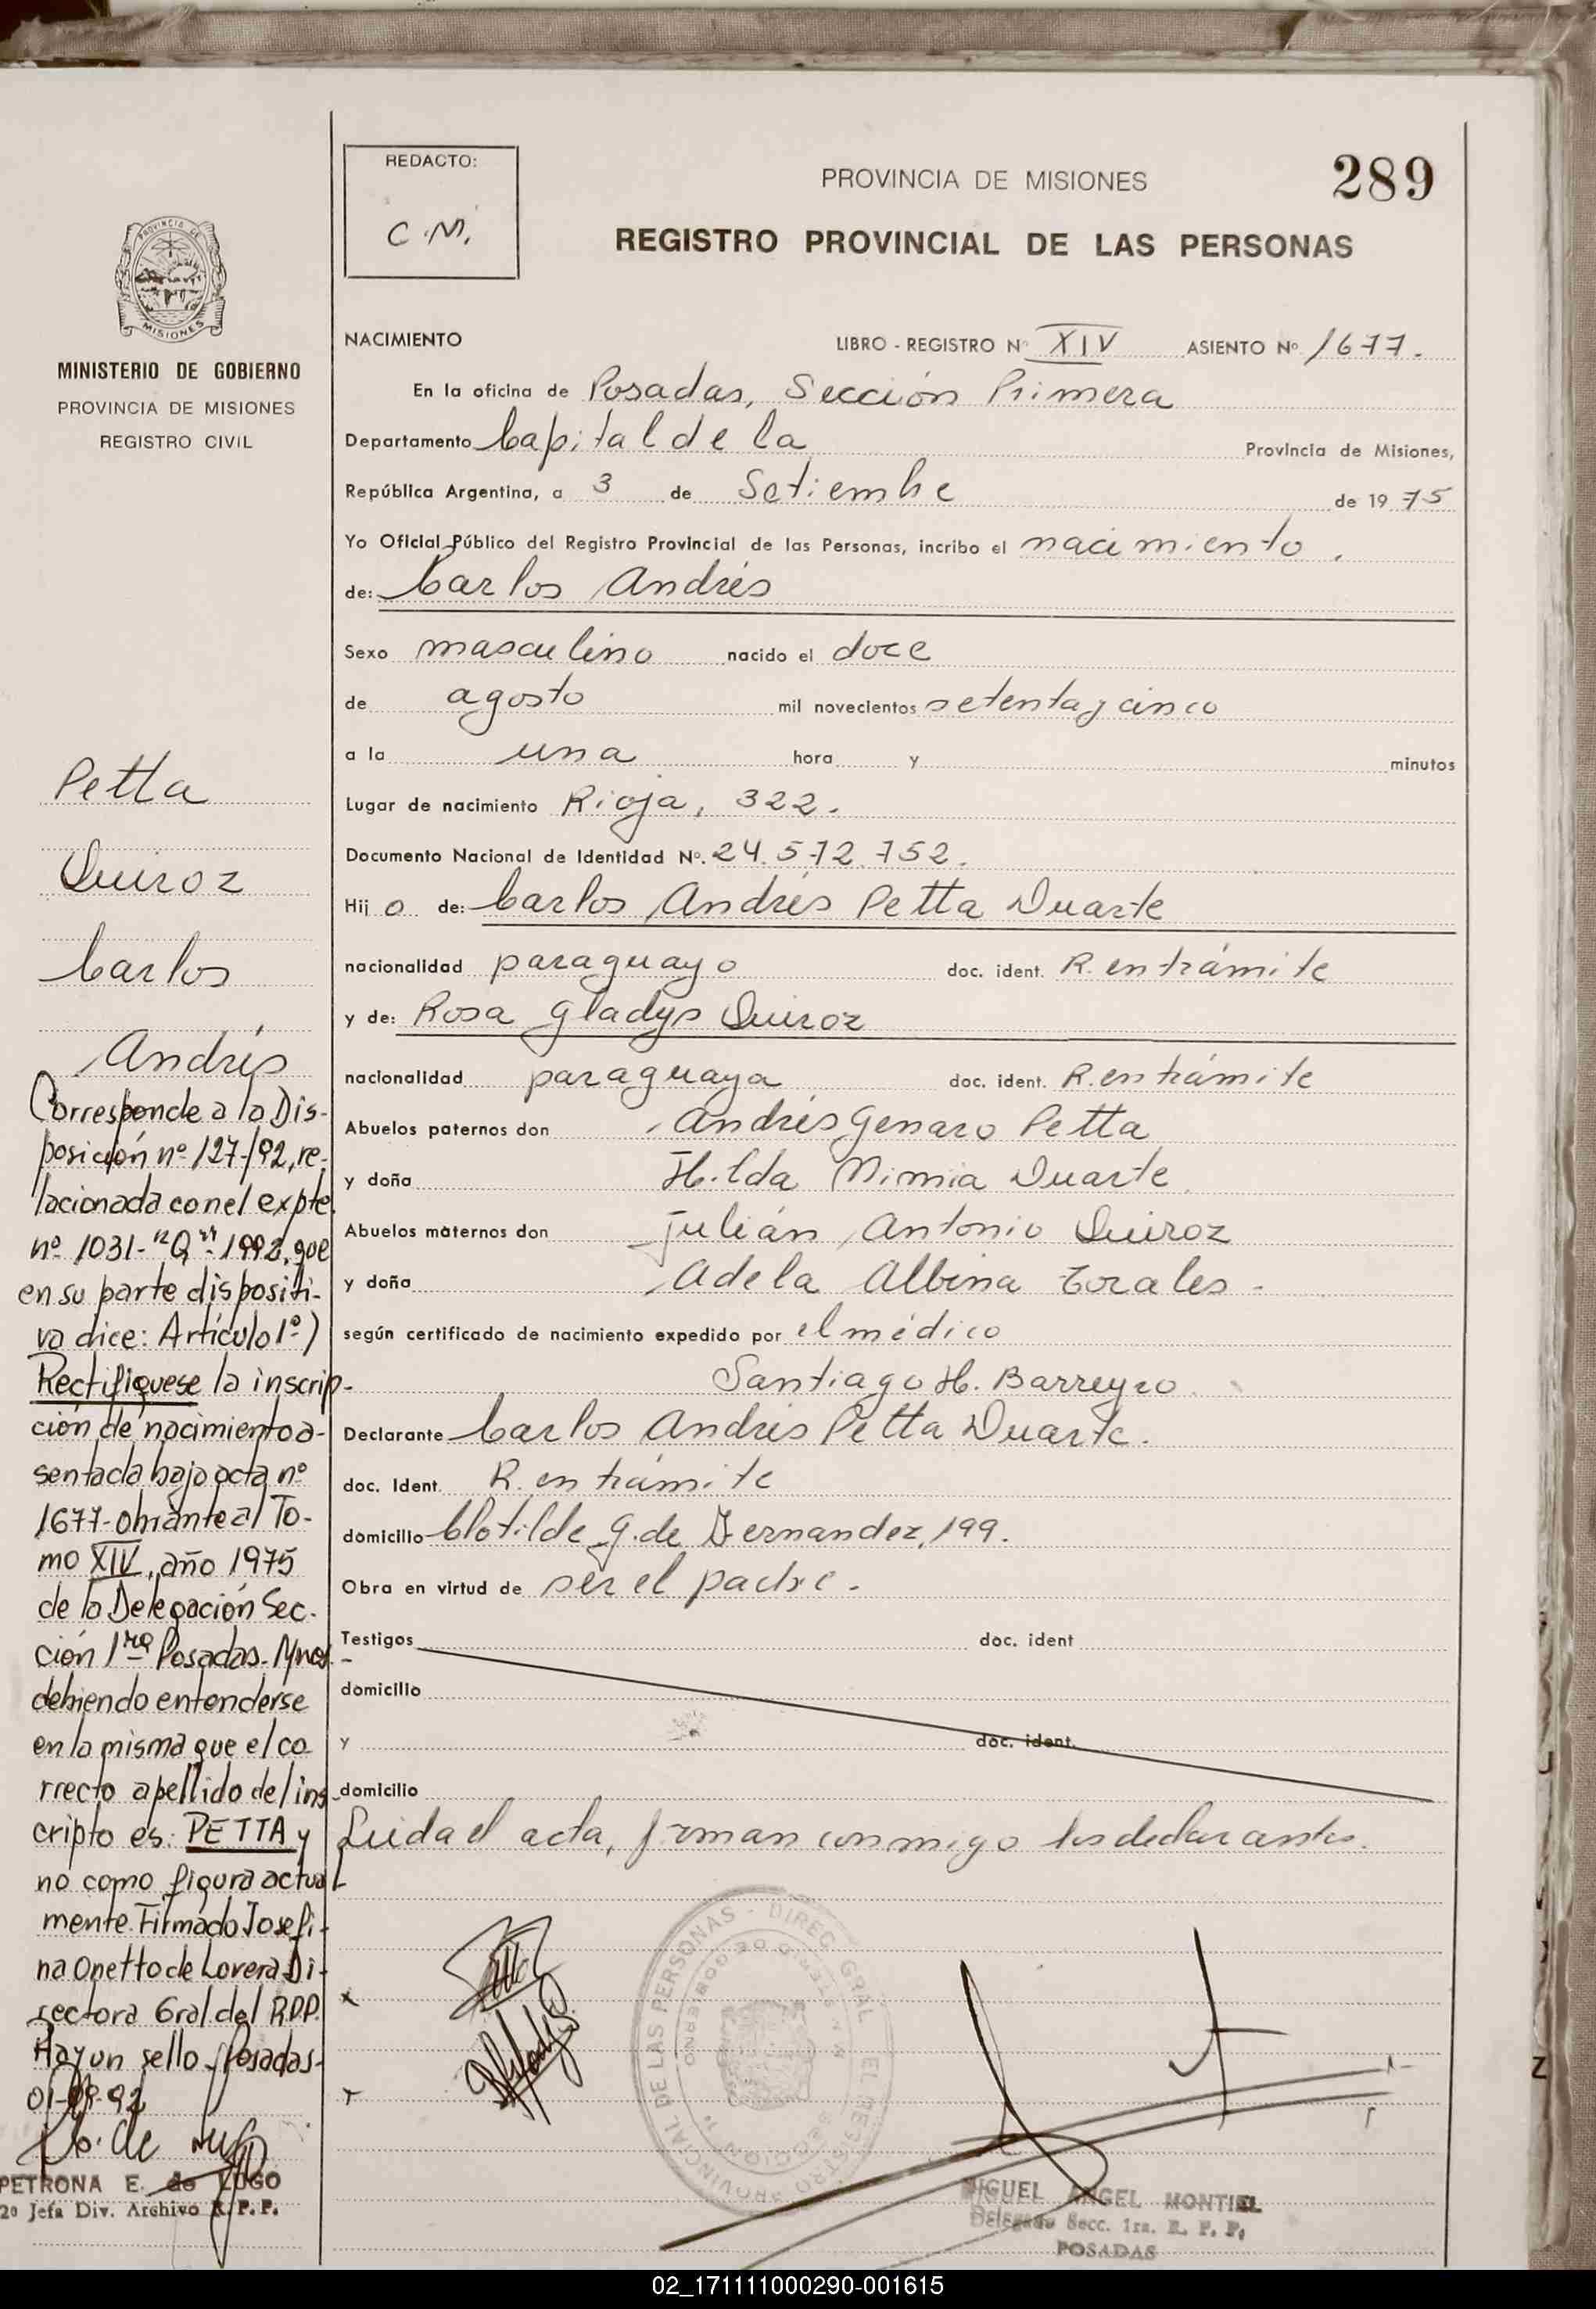 289
REDACTO:
C.M.
PROVINCIA DE MISIONES
REGISTRO PROVINCIAL DE LAS PERSONAS
PROVINCIA DE
MISIONES
MINISTERIO DE GOBIERNO
PROVINCIA DE MISIONES
REGISTRO CIVIL
NACIMIENTO LIBRO - REGISTRO Nº XIV ASIENTO Nº 1677.
En la oficina de Posadas, Sección Primera
Departamento Capital de la Provincia de Misiones,
República Argentina, a 3 de Setiembre de 1975
Yo Oficial Público del Registro Provincial de las Personas, incribo el nacimiento.
de: Carlos Andrés
Sexo masculino nacido el doce
de agosto mil novecientos setenta y cinco
a la una hora y minutos
Lugar de nacimiento Rioja, 322.
Documento Nacional de Identidad Nº. 24.572.752.
Hijo de: Carlos Andrés Petta Duarte
nacionalidad paraguayo doc. ident. R. en trámite
y de: Rosa Gladys Quiroz
nacionalidad paraguaya doc. ident. R. en trámite
Abuelos paternos don Andrés Genaro Petta
y doña Hilda Duarte
Abuelos maternos don Julián Antonio Quiroz
y doña Adela Albina Torales -
según certificado de nacimiento expedido por el médico
Santiago H. Barreyro
Declarante Carlos Andrés Petta Duarte.
doc. Ident. R. en trámite
domicilio Clotilde G. de Fernandez, 199.
Obra en virtud de ser el padre.
Testigos doc. ident
domicilio
y doc. ident.
domicilio
Leida el acta, firman conmigo los declarantes.
Petta
Quiroz
Carlos
Andrés
Corresponde a la Dis-
posición nº 127/92, re-
lacionada con el expte.
nº 1031-"Q"-1992, que
en su parte dispositi-
va dice: Artículo 1º)
Rectifíquese la inscrip-
ción de nacimiento a-
sentada bajo acta nº
1677-obrante al To-
mo XIV, año 1975
de la Delegación Sec-
ción 1ra Posadas-Mnes.
debiendo entenderse
en la misma que el co
rrecto apellido del ins-
cripto es: PETTA y
no como figura actual
mente. Firmado Josefi-
na Onetto de Lovera Di-
rectora Gral. del RPP.
Hay un sello. Posadas-
PETRONA E. de LUGO
2º Jefa Div. Archivo R. P. P.
MIGUEL ANGEL MONTIEL
Delegado Secc. 1ra. R. P. P.
POSADAS
02_171111000290-001615